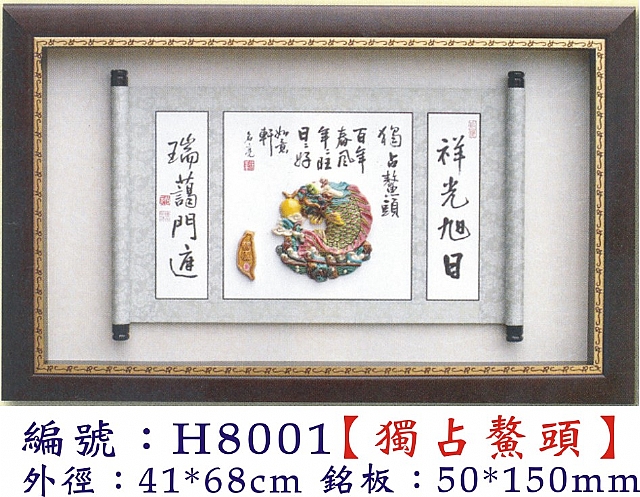 祥光旭日
獨占鰲頭
百年
春風
年年旺
日日好
如意
軒
瑞藹門庭
編號：H8001【獨占鰲頭】
外徑：41*68cm 銘板：50*150mm